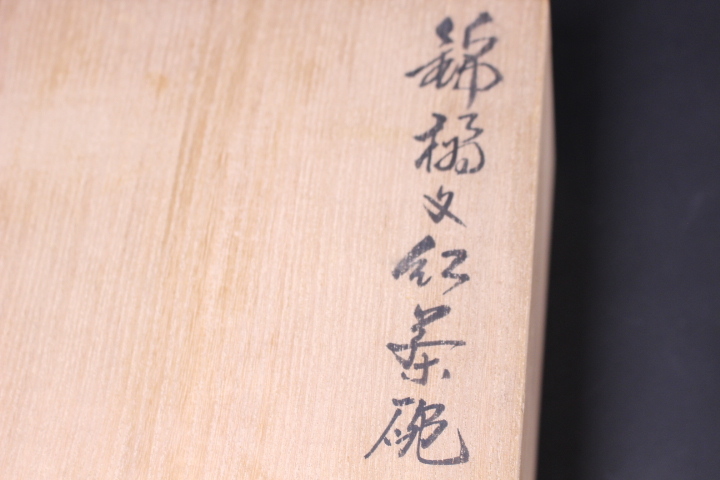 錦橘文紅茶碗